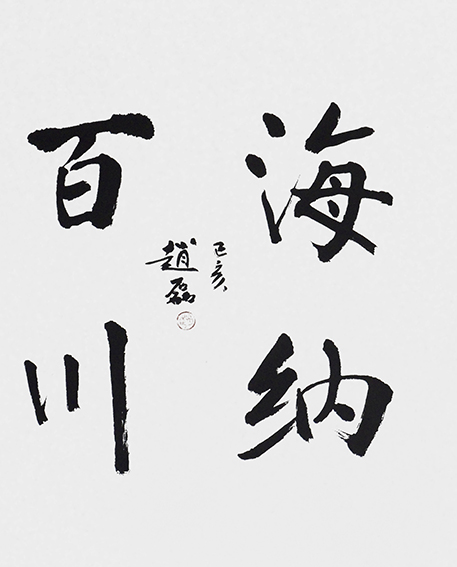 海纳
百川
己亥
趙磊